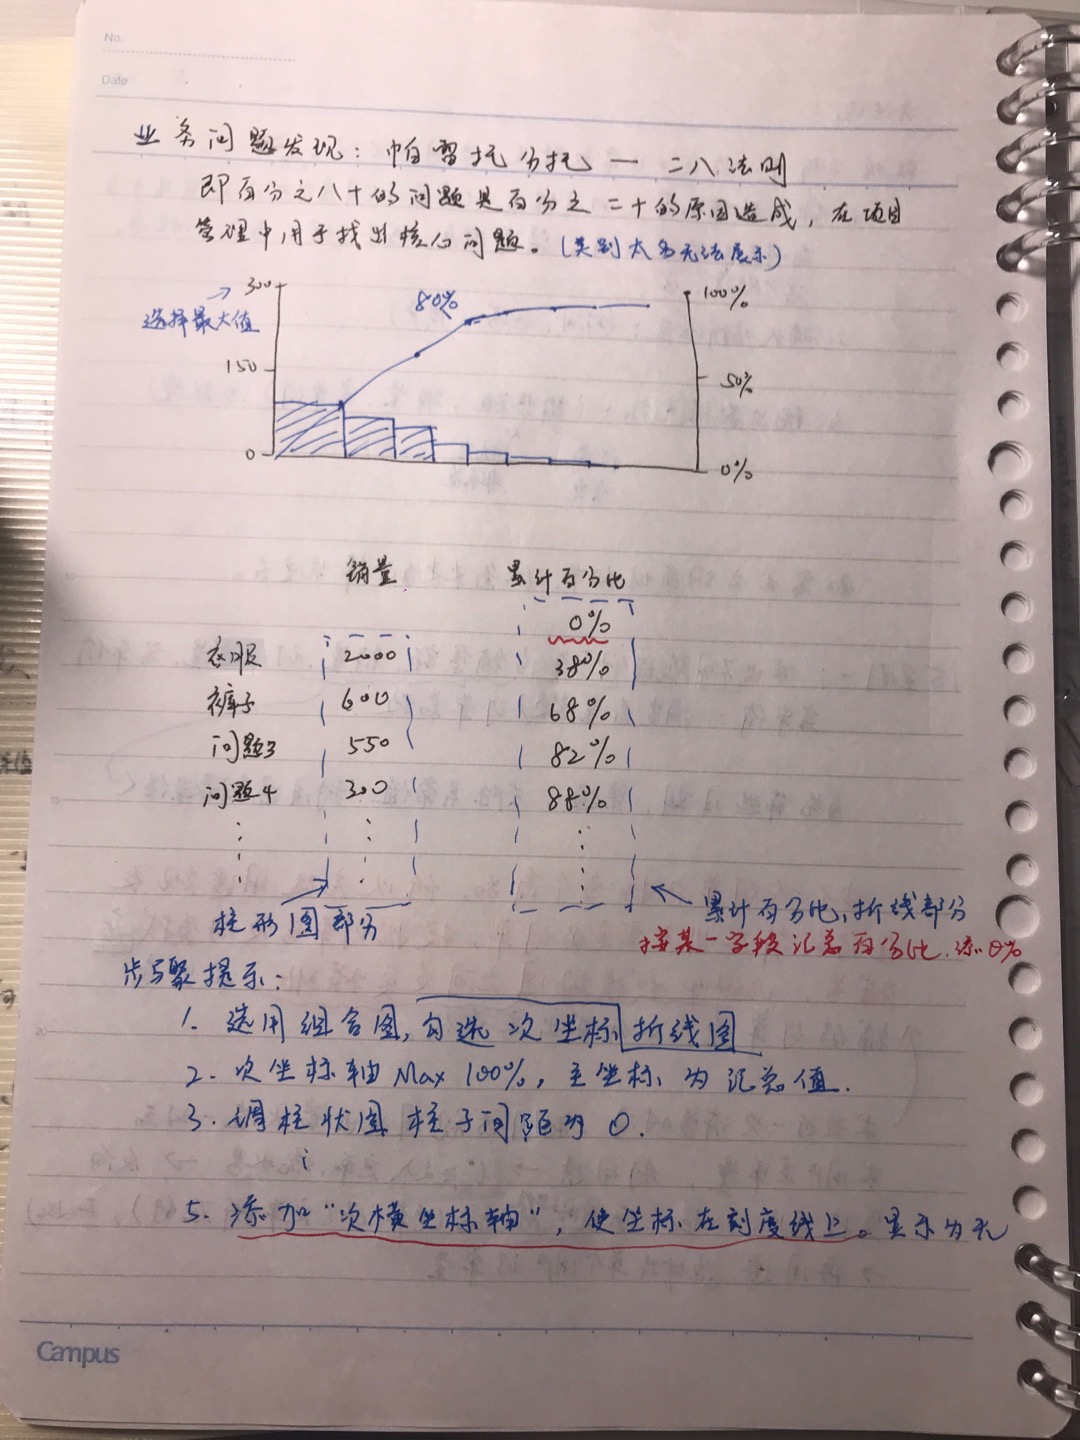 No.
Date
业务问题发现：帕雷托分托 — 二八法则
即百分之八十的问题是百分之二十的原因造成，在项目
管理中用于找出核心问题。(类别太多无法展示)
300
→
选择最大值
80%
100%
150
50%
0
0%
销量 累计百分比
0%
衣服 2000 38%
裤子 600 68%
问题3 550 82%
问题4 300 88%
柱形图部分
累计百分比，折线部分
按某一字段汇总百分比，添0%
步骤提示：
1. 选用组合图，勾选次坐标 折线图
2. 次坐标轴 Max 100%，主坐标为汇总值.
3. 调柱状图柱子间距为0.
5. 添加"次横坐标轴"，使坐标在刻度线上。显示为无
Campus